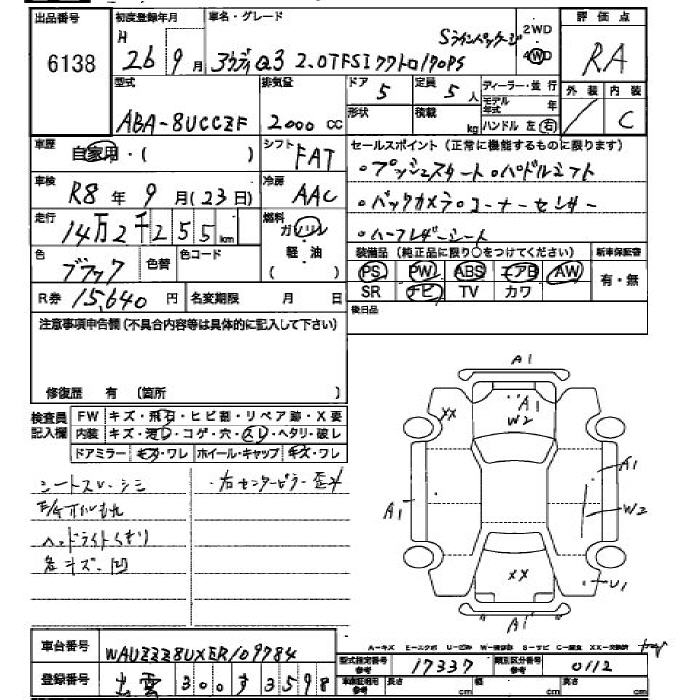 出品番号 初度登録年月 車名・グレード 評価点
6138 H 26 9月 アウディQ3 2.0TFSIクワトロ170PS Sラインパッケージ 2WD 4WD RA
型式 排気量 ドア 5 定員 5人 ディーラー・並行 外装 内装
ABA-8UCCZF 2000cc 形状 積載 kg モデル年式 年 ハンドル 左 右 C
車歴 自家用・( ) シフト FAT セールスポイント(正常に機能するものに限ります)
車検 R8年9月(23日) 冷房 AAC ・プッシュスタート・パドルシフト
・バックカメラ・コーナーセンサー
走行 14万2千255km 燃料 ガソリン 軽油 ( ) ・ハーフレザーシート
色 ブラック 色替 色コード 装備品(純正品に限り○をつけてください) 新車保証書
PS PW ABS エアB AW 有・無
R券 15,640円 名変期限 月 日 SR ナビ TV カワ
注意事項申告欄(不具合内容等は具体的に記入して下さい) 後日品
修復歴 有 〔箇所 〕
検査員記入欄 FW キズ・飛石・ヒビ割・リペア跡・X要
内装 キズ・汚レ・コゲ・穴・スレ・ヘタリ・破レ
ドアミラー キズ・ワレ ホイール・キャップ キズ・ワレ
シートスレ・シミ ・右センターピラー歪ミ
ヘッドライトくもり
各キズ・凹
A1
XX A1 W2
A1
A1 W2
XX U1
A1
A-キズ E-エクボ U-凹み W-補修跡 S-サビ C-腐食 XX-交換済
車台番号 WAUZZZ8UXER109784
型式指定番号 参考 17337 類別区分番号 参考 0112 高さ cm
登録番号 出雲 300 す 3598 長さ cm 幅 cm